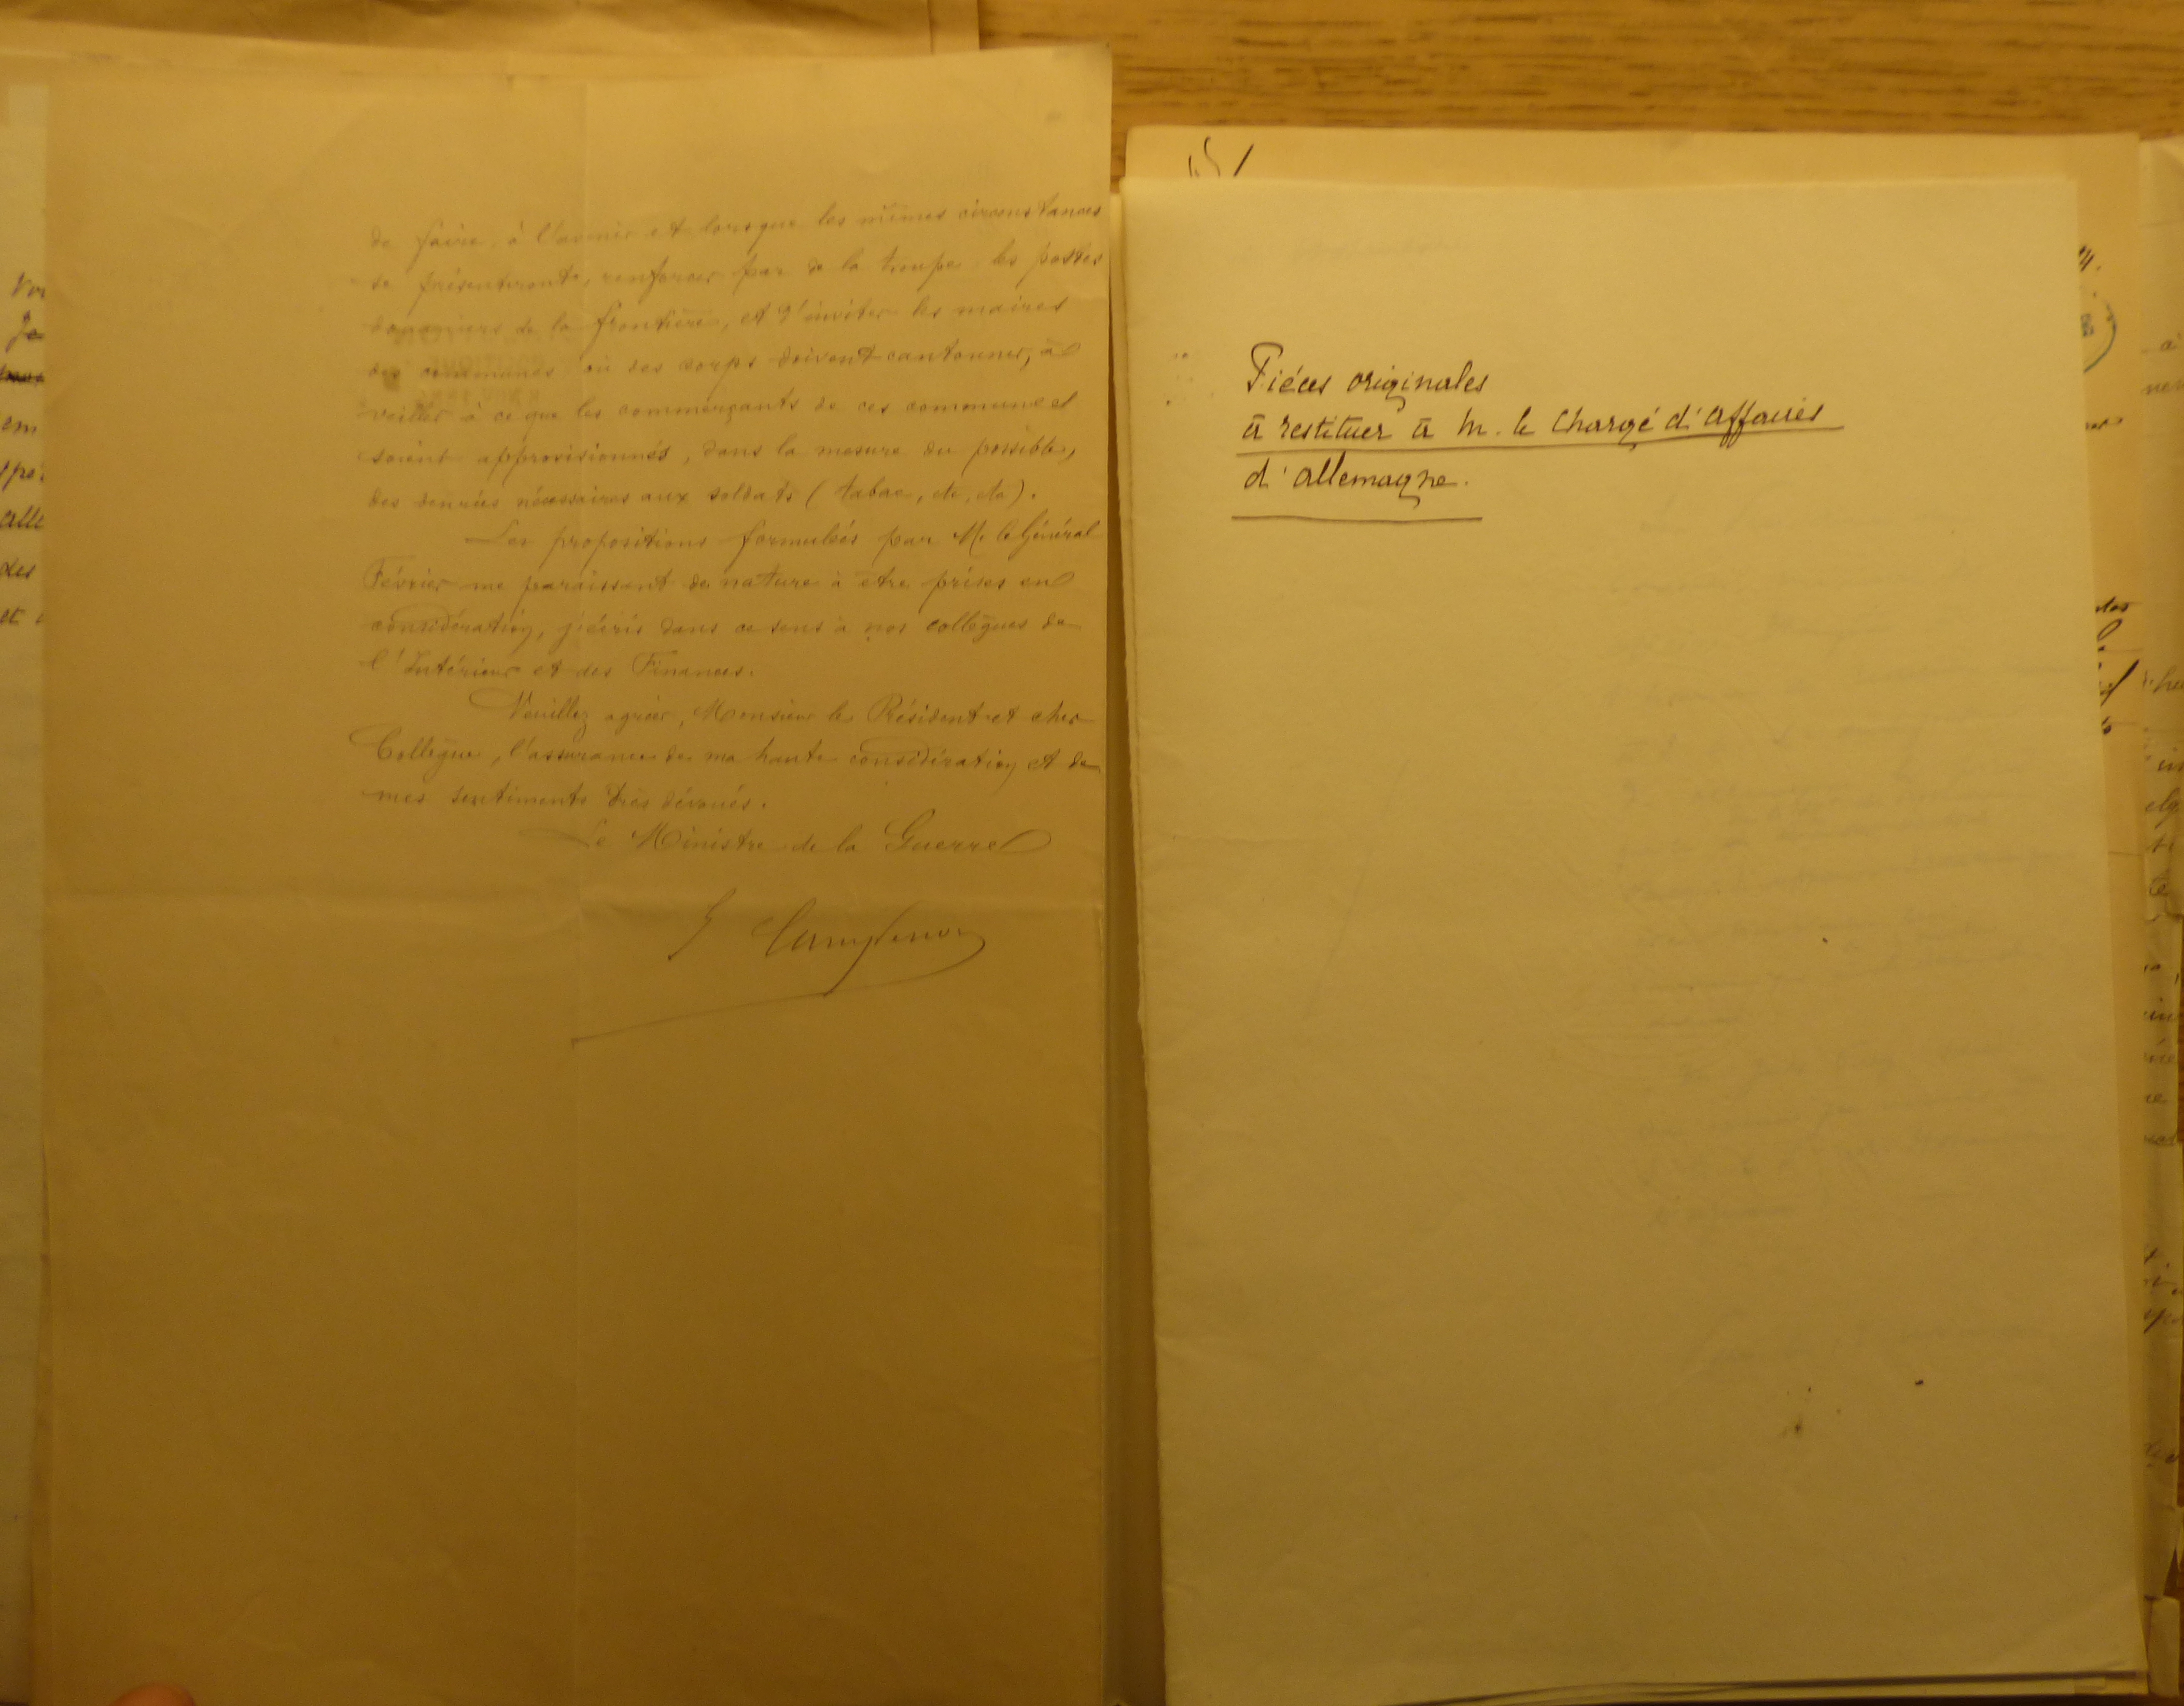 de faire, à l'avenir et lorsque les mêmes circonstances
se présenteront, renforcer par de la troupe les postes
douaniers de la frontière, et d'inviter les maires
des communes où des corps doivent cantonner, à
veiller à ce que les commerçants de ces communes
soient approvisionnés, dans la mesure du possible,
des denrées nécessaires aux soldats (tabac, etc, etc).
Les propositions formulées par M. le Général
Février me paraissant de nature à être prises en
considération, j'écris dans ce sens à nos collègues de
l'Intérieur et des Finances.
Veuillez agréer, Monsieur le Président et cher
Collègue, l'assurance de ma haute considération et de
mes sentiments très dévoués.
Le Ministre de la Guerre
Pièces originales
à restituer à M. le Chargé d'Affaires
d'Allemagne.